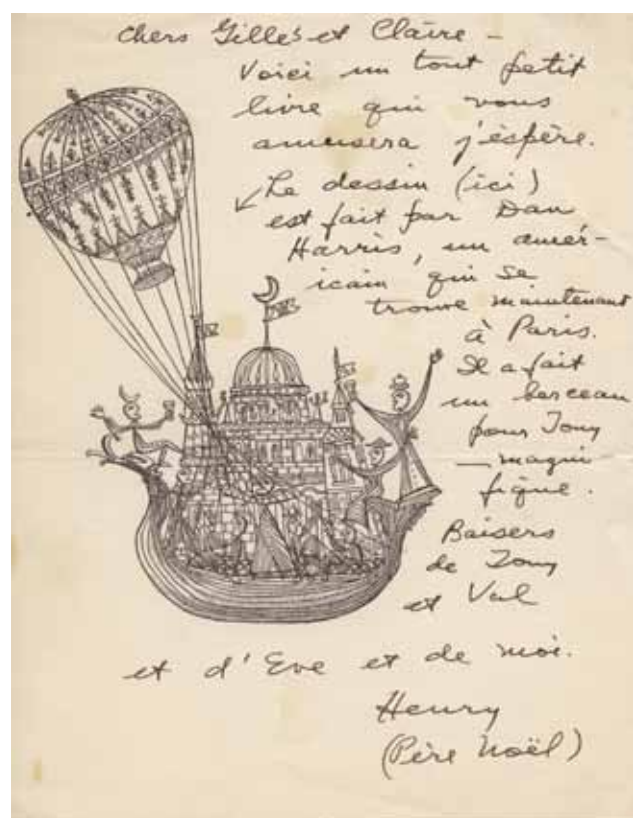 Chers Gilles et Claire –
Voici un tout petit
livre qui vous
amusera j'éspère.
Le dessin (ici)
est fait par Dan
Harris, un amér-
icain qui se
trouve maintenant
à Paris.
Il a fait
un berceau
pour Tony
– magni
fique.
Baisers
de Tony
et Val
et d'Eve et de moi.
Henry
(Père Noël)